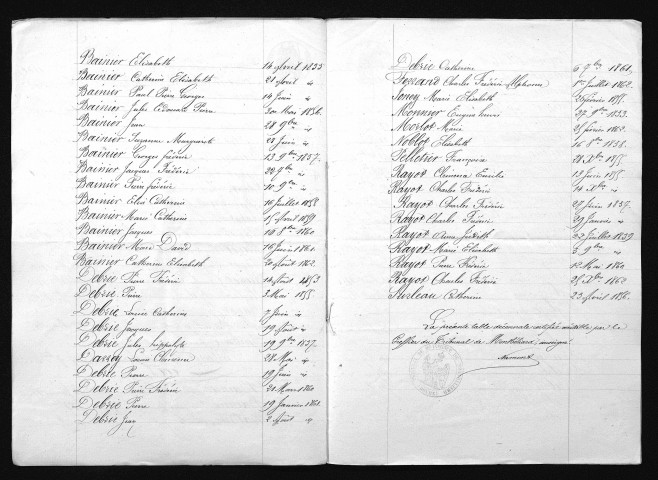 Bainier Elisabeth 14 Avril 1855
Bainier Catherine Elisabeth 21 Avril id
Bainier Paul Pierre Georges 14 Juin id
Bainier Jules Edouard Pierre 30 Mai 1856.
Bainier Jean 28 9bre id
Bainier Suzanne Marguerite 25 Juin id
Bainier Georges Frédéric 13 9bre 1857.
Bainier Jacques Frédéric 22 9bre id
Bainier Pierre Frédéric 10 9bre id
Bainier Elise Catherine 16 Juillet 1858
Bainier Marie Catherine 15 Avril 1859
Bainier Jacques 10 8bre 1860
Bainier Marc David 16 Juin 1861.
Bainier Catherine Elisabeth 20 Août 1862.
Debrie Pierre Frédéric 14 Août 1853
Debrie Pierre 3 Mai 1855
Debrie Louise Catherine 7 Juin id
Debrie Jacques 19 Août id
Debrie Jules hippolyte 19 9bre 1857.
Louise 28 Mai id
Debrie Pierre 19 Juin id
Debrie Pierre Frédéric 21 Mars 1860
Debrie Pierre 19 Janvier 1861
Debrie Jean 2 Août id
Debrie Catherine 6 9bre 1861.
Charles Frédéric Alphonse 1er Juillet 1862.
Marie Elisabeth Février 1855.
Monnier Eugène 27 9bre 1853.
Morlot Marie 25 février 1862.
Noblot Elisabeth 16 8bre 1858.
Pelletier Françoise 21 Xbre 1855
Rayot Clémence Emilie 12 Juin 1855
Rayot Charles Frédéric 14 Xbre id
Rayot Charles Frédéric 27 Juin 1857.
Rayot Charles Frédéric 29 Janvier id
Rayot Anna Judith 22 Juillet 1859
Rayot Marie Elisabeth 3 9bre id
Rayot Pierre Frédéric 12 Mai 1860
Rayot Charles Frédéric 25 Xbre 1862
Surleau Catherine 23 Avril 1856.
La présente table décennale certifiée véritable par le
Greffier du Tribunal de Montbéliard, soussigné